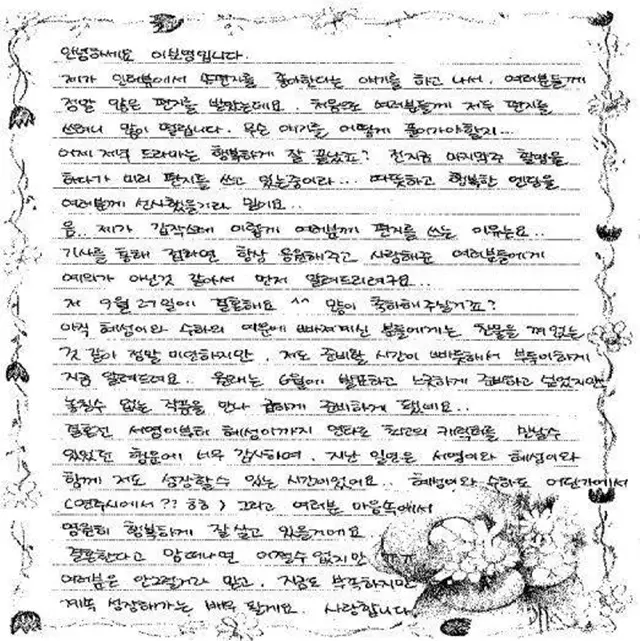 안녕하세요 이보영입니다.
제가 인터뷰에서 손편지를 좋아한다는 얘기를 하고 나서, 여러분들께
정말 많은 편지를 받았는데요. 처음으로 여러분들께 저두 편지를
쓰려니 많이 떨립니다. 무슨 얘기를 어떻게 풀어가야할지...
어제 저녁 드라마는 행복하게 잘 끝났죠? 전지금 마지막주 촬영을
하다가 미리 편지를 쓰고 있는중이라... 따뜻하고 행복한 엔딩을
여러분께 선사했을거라 믿어요..
음.. 제가 갑작스레 이렇게 여러분께 편지를 쓰는 이유는요..
기사를 통해 접하면 항상 응원해주고 사랑해준 여러분들에게
예의가 아닌것 같아서 먼저 알려드리려구요..
저 9월 27일에 결혼해요 ^^ 많이 축하해주실거죠?
아직 혜성이와 수하의 여운에 빠져계신 분들에게는 찬물을 껴얹는
것 같아 정말 미안하지만, 저도 준비할 시간이 빠듯해서 부득이하게
지금 알려드려요.. 원래는 6월에 발표하고 느긋하게 준비하고 싶었지만
놓칠수 없는 작품을 만나 급하게 준비하게 됐네요..
결혼전 서영이부터 혜성이까지 연타로 최고의 캐릭터를 만날수
있었던 행운에 너무 감사하며, 지난 일년은 서영이와 혜성이와
함께 저도 성장할수 있는 시간이었어요.. 혜성이와 수하도 어딘가에서
(연주시에서?? ㅎㅎ) 그리고 여러분 마음속에서
영원히 행복하게 잘 살고 있을거에요
결혼한다고 맘떠나면 어쩔수 없지만 ㅠㅠ
여러분은 안그럴거라 믿고, 지금도 부족하지만
계속 성장해가는 배우 될게요. 사랑합니다